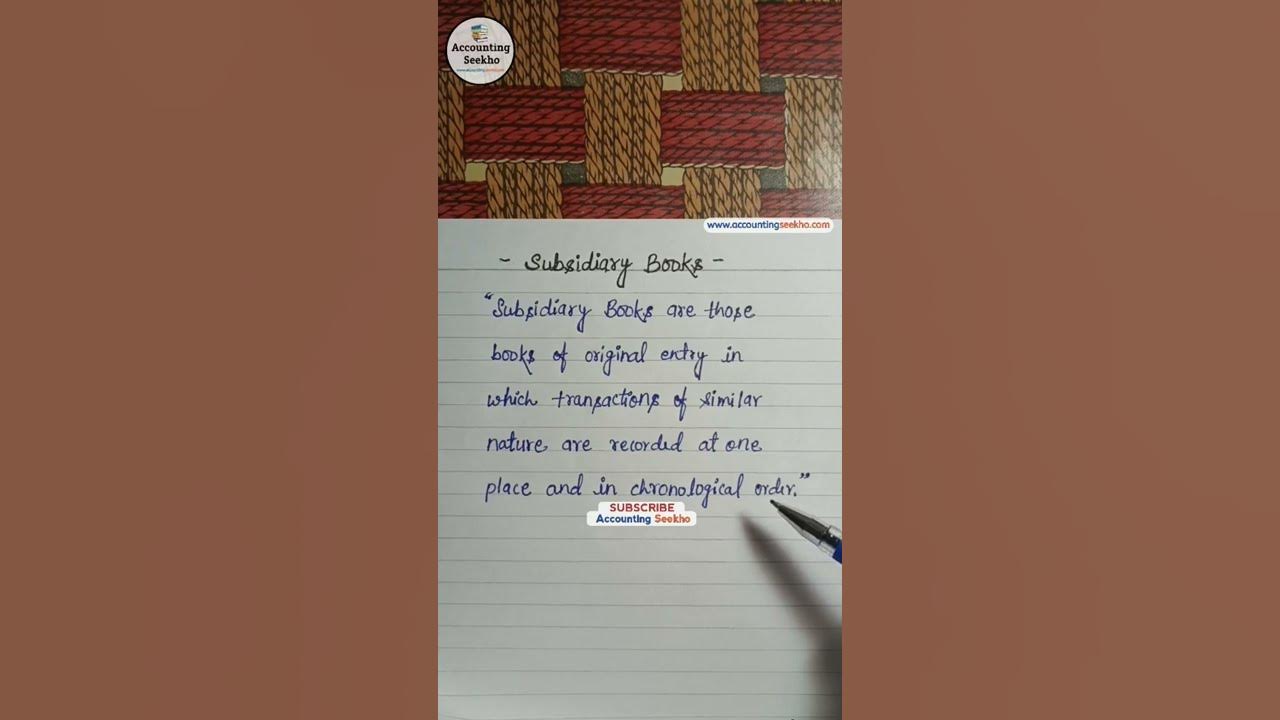 Accounting
Seekho
www.accountingseekho.com
- Subsidiary Books -
"Subsidiary Books are those
books of original entry in
which transactions of similar
nature are recorded at one
place and in chronological order."
SUBSCRIBE
Accounting Seekho